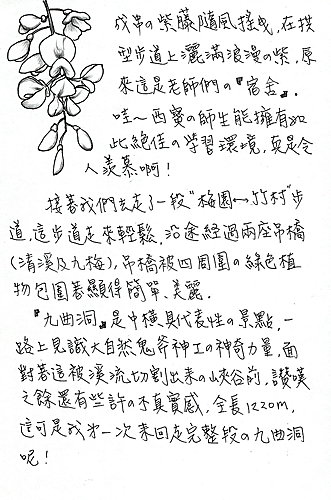 成串の紫藤隨風搖曳，在拱
型步道上灑滿浪漫の紫，原
來這是老師們の『宿舍』.
哇～西寶の師生能擁有如
此絕佳の學習環境，真是令
人羨慕啊！
接著我們去走了一段"梅園↔竹村"步
道，這步道走來輕鬆，沿途經過兩座吊橋
(清溪及九梅)，吊橋被四周圍の綠色植
物包圍著顯得簡單、美麗.
『九曲洞』是中橫具代表性の景點，一
路上見識大自然鬼斧神工の神奇力量，面
對著這被溪流切割出來の峽谷前，讚嘆
之餘還有些許の不真實感，全長1220m，
這可是我第一次來回走完整段の九曲洞
呢！